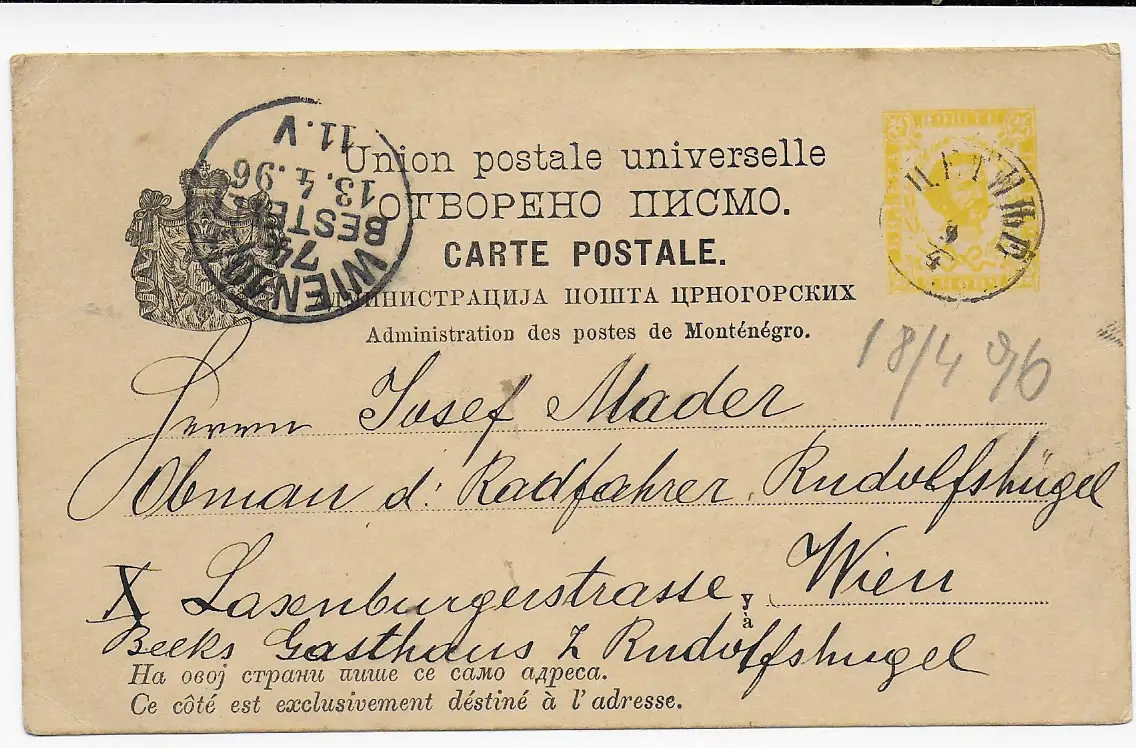 Union postale universelle
ОТВОРЕНО ПИСМО.
CARTE POSTALE.
АДМИНИСТРАЦИЈА ПОШТА ЦРНОГОРСКИХ
Administration des postes de Monténégro.
WIEN 10/1
74
BESTELLT
13.4.96
11.V
ЦЕТИЊЕ
9/4
25
25
18/4 96
Herrn Josef Mader
Obman d: Radfahrer Rudolfshügel
X Laxenburgerstrasse, Wien
у
à
Becks Gasthaus Z Rudolfshugel
На овој страни пише се само адреса.
Ce côté est exclusivement déstiné à l'adresse.